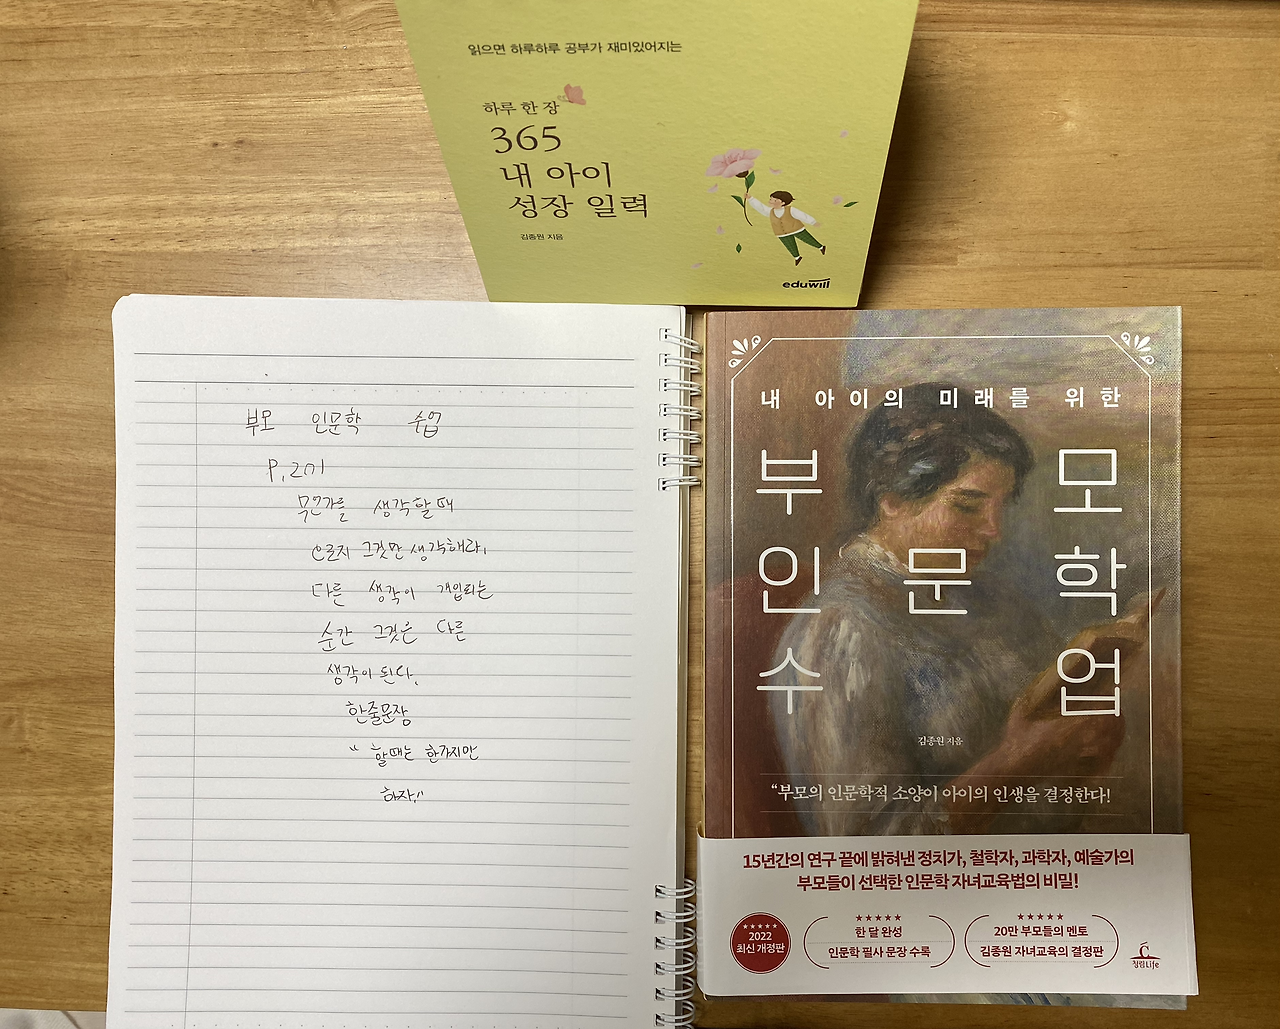 읽으면 하루하루 공부가 재미있어지는
하루 한 장
365
내 아이
성장 일력
김종원 지음
eduwill
부모 인문학 수업
P.27
무언가를 생각할 때
오로지 그것만 생각해라.
다른 생각이 개입되는
순간 그것은 다른
생각이 된다.
한줄문장
"할때는 한가지만
하자!"
내 아이의 미래를 위한
부모
인문학
수업
김종원 지음
"부모의 인문학적 소양이 아이의 인생을 결정한다!
15년간의 연구 끝에 밝혀낸 정치가, 철학자, 과학자, 예술가의
부모들이 선택한 인문학 자녀교육법의 비밀!
★★★★★
2022
최신 개정판
★★★★★
한 달 완성
인문학 필사 문장 수록
★★★★★
20만 부모들의 멘토
김종원 자녀교육의 결정판
청림Life